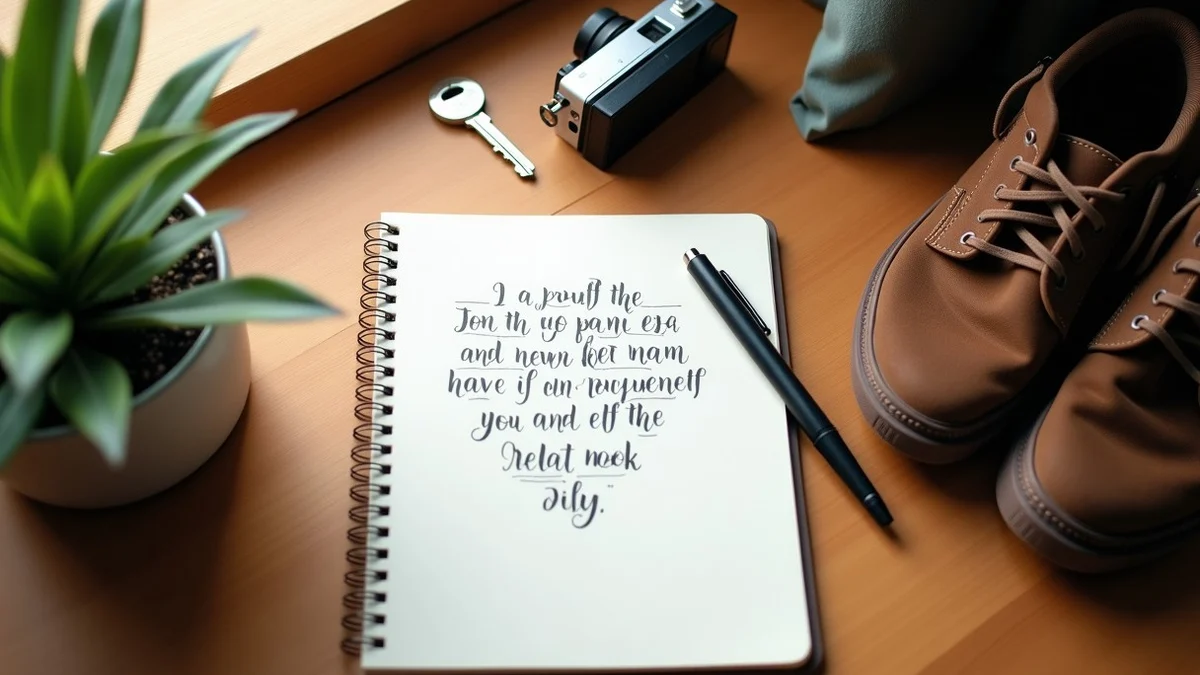 I a prouf the
Jon th yo pani era
and newn foet nam
have if an-rucguenelf
you and elf the
Relat nook
Jily."